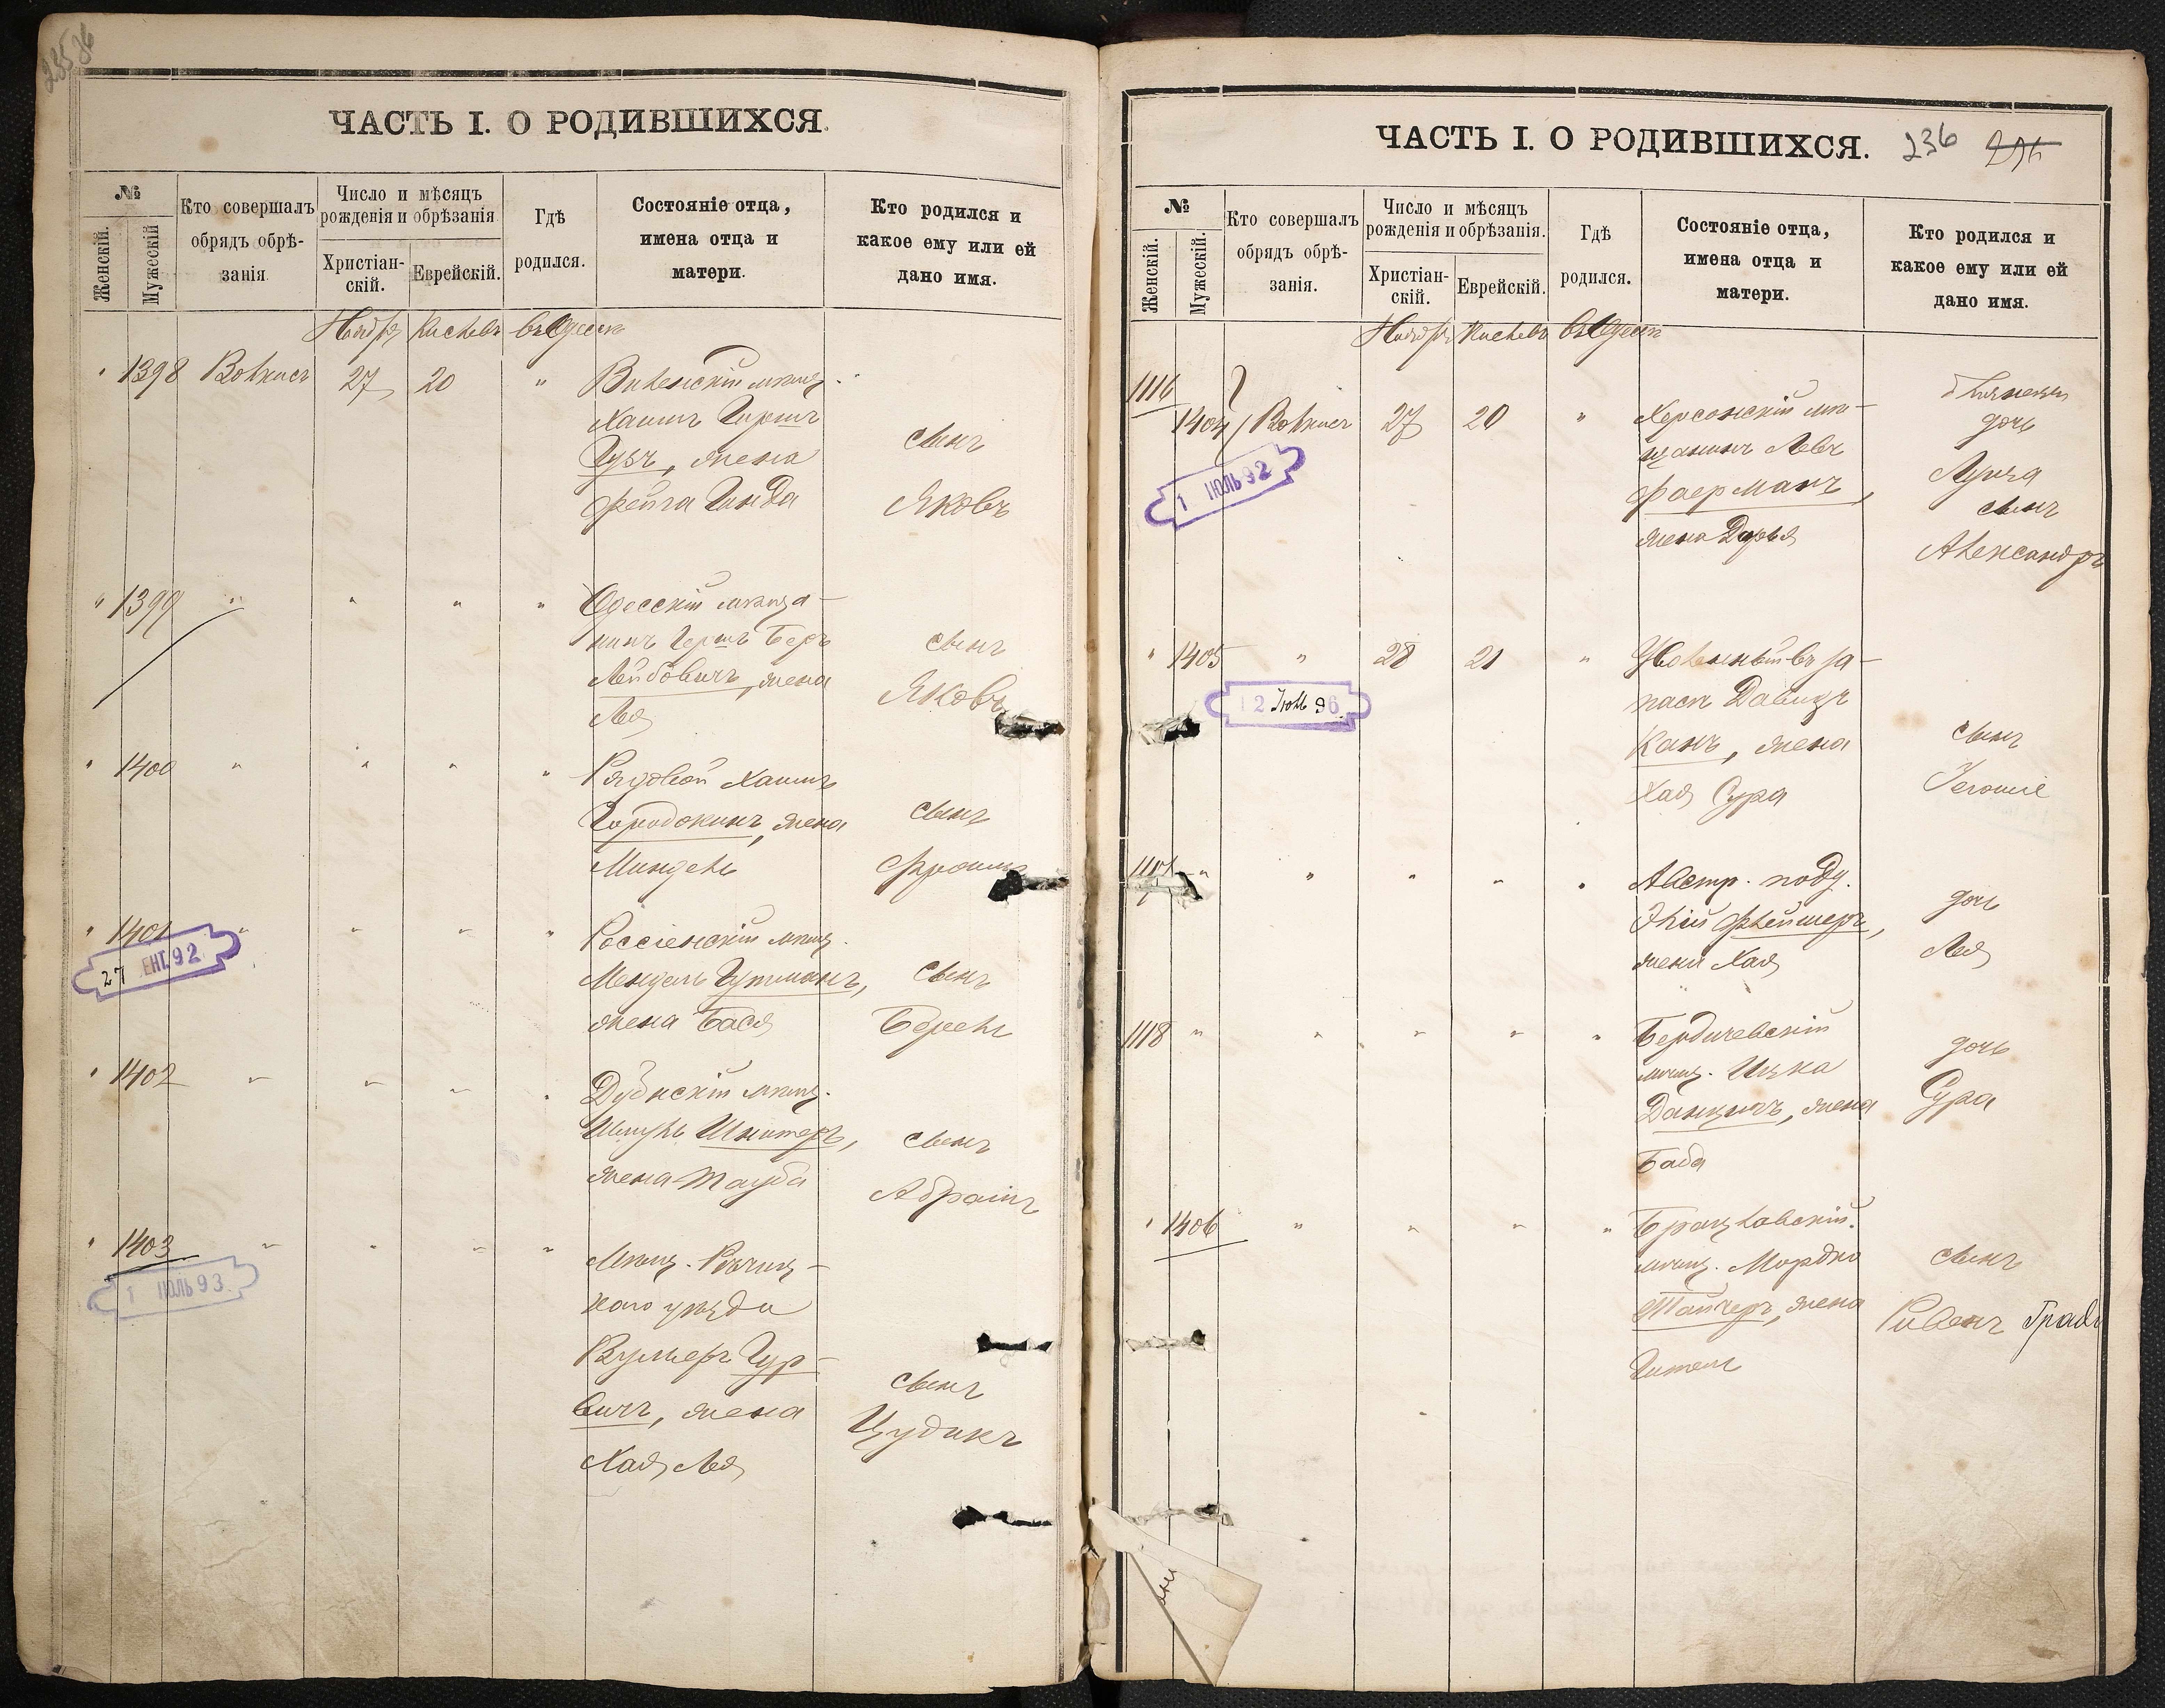 ЧАСТЬ I. О РОДИВШИХСЯ.
№
Женскій.
Мужескій
Кто совершалъ
обрядъ обрѣ-
занія
Число и мѣсяцъ
рожденія и обрѣзанія
Христіан-
скій.
Еврейскій.
Гдѣ
родился.
Состояніе отца,
имена отца и
матери.
Кто родился и
какое ему или ей
дано имя.
Ноябрь Кислевъ въ Одессѣ
" 1398 27 20 " Виленскій мѣщ.
Хаимъ Гиршъ
Гузъ, жена
Фейга Гинда
сынъ
Яковъ
" 1399 " " " " Одесскій мѣща-
нинъ Гершъ Беръ
Лейбовичъ, жена
Лея
сынъ
Яковъ
" 1400 " " " " Рядовой Хаимъ
Городокинъ, жена
Миндель
сынъ
Фроимъ
" 1401 " " " " Россіенскій мѣщ.
Мендель Гутманъ,
жена Бася
сынъ
Берель
27 СЕНТ. 92
" 1402 " " " " Дубнскій мѣщ.
Шмуль Шнитеръ,
жена Тауба
сынъ
Абрамъ
" 1403 " " " " Мѣщ. Рѣчиц-
каго уѣзда
Гур-
вичъ, жена
Хая Лея
сынъ
Цудикъ
1 ІЮЛЬ 93
ЧАСТЬ I. О РОДИВШИХСЯ.
236
№
Женскій.
Мужескій.
Кто совершалъ
обрядъ обрѣ-
занія.
Число и мѣсяцъ
рожденія и обрѣзанія.
Христіан-
скій.
Еврейскій.
Гдѣ
родился.
Состояніе отца,
имена отца и
матери.
Кто родился и
какое ему или ей
дано имя.
Ноябрь Кислевъ въ Одессѣ
1116
1404 27 20 " Херсонскій мѣ-
щанинъ Левъ
Фаерманъ,
жена Дарья
близнецы
дочь
Луиза
сынъ
Александръ
1 ІЮЛЬ 92
" 1405 " 28 21 " Уволенный въ за-
пасъ Давидъ
Канъ, жена
Хая Сура
сынъ
12 Іюл 96
" " " " Австр. подд.
Элій Флейшеръ,
жена Хая
дочь
Лея
1118 " " " " " Бердичевскій
мѣщ. Ицка
Данцигъ, жена
Баба
дочь
Сура
" 1406 " " " " Брацлавскій
мѣщ. Мордко
Тайчеръ, жена
Гитель
сынъ
Рувенъ